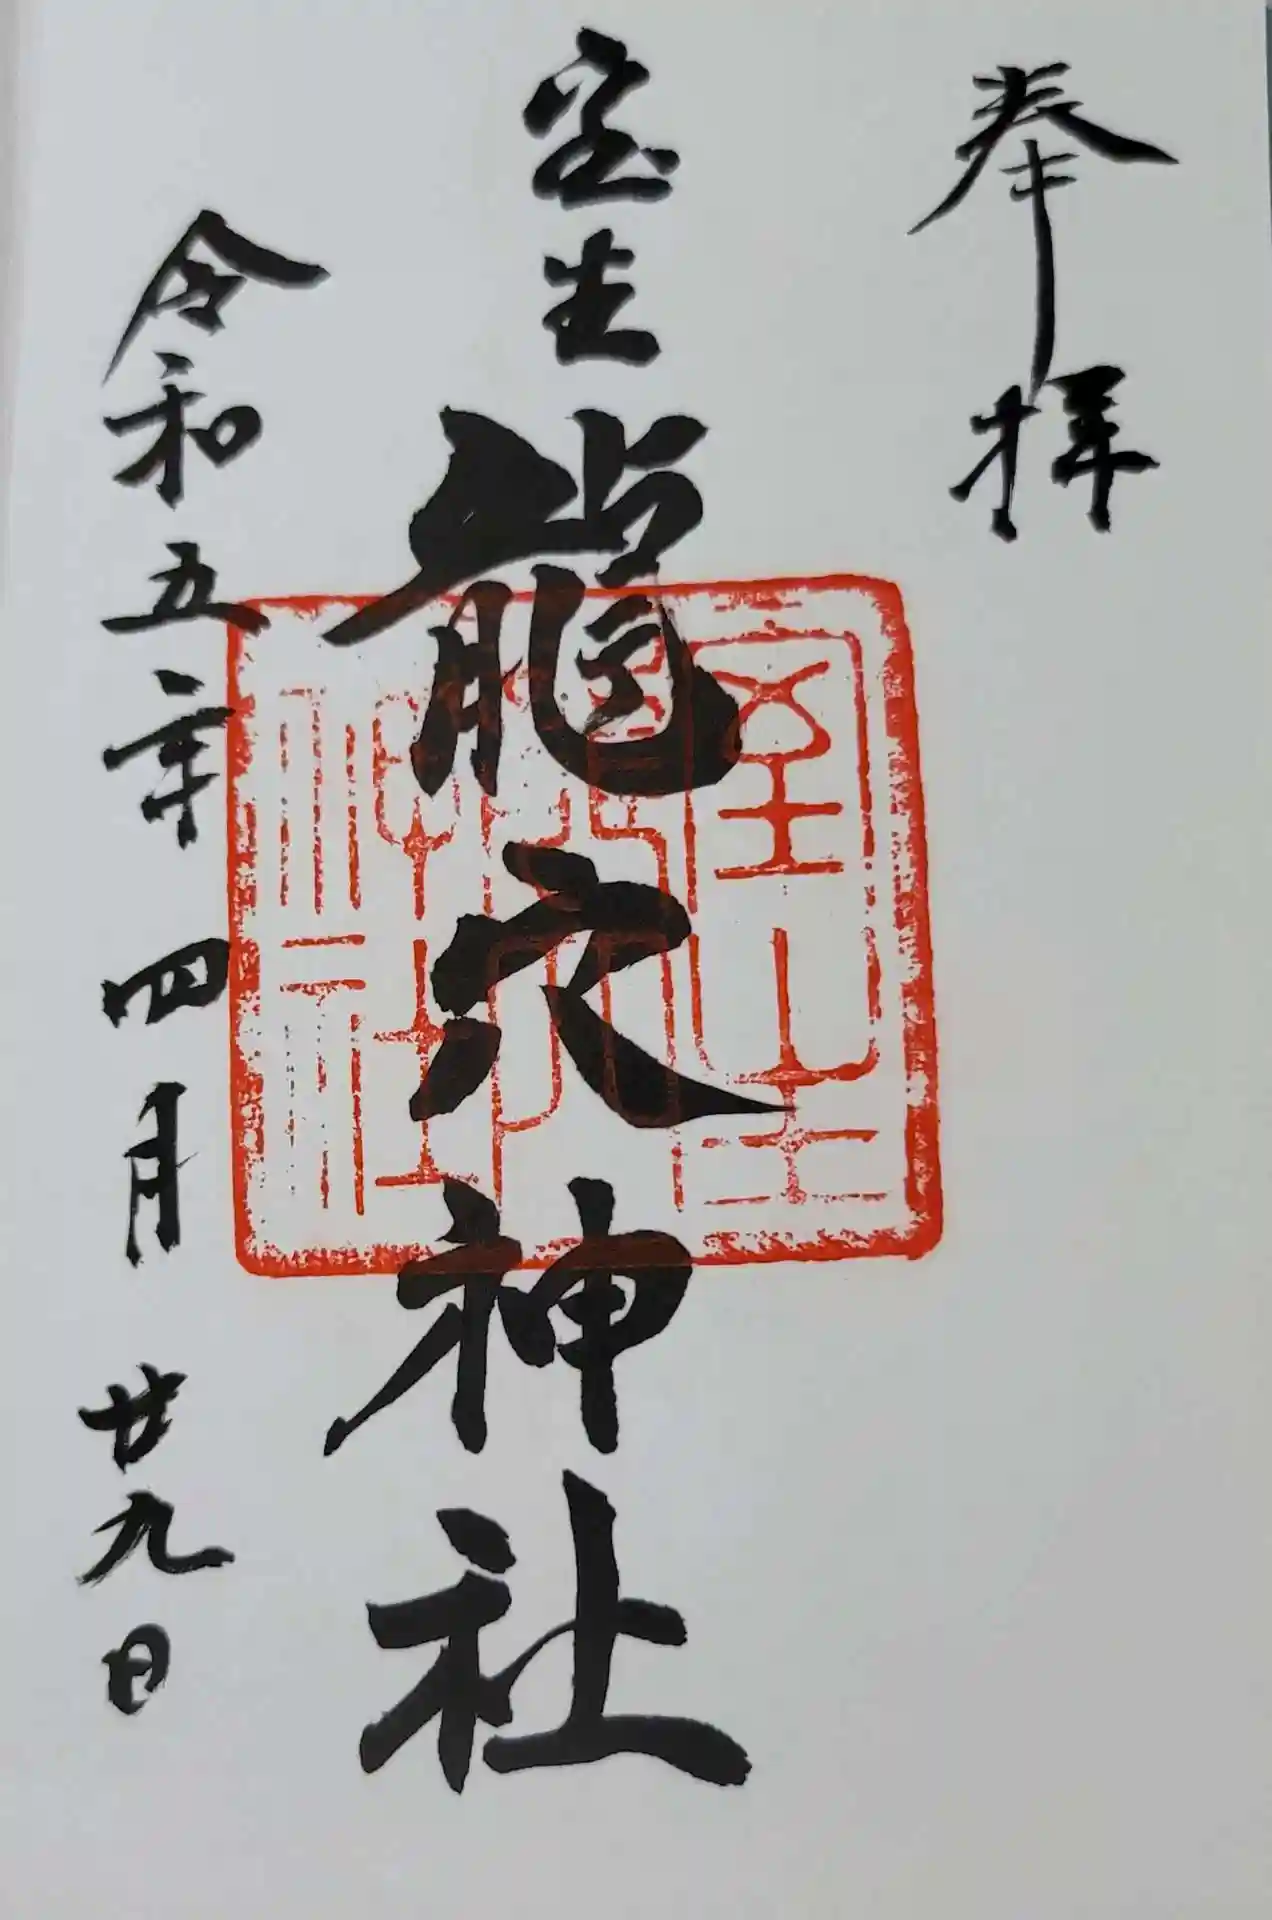 奉拝
室生龍穴神社
室生龍穴神社
令和五年四月廿九日